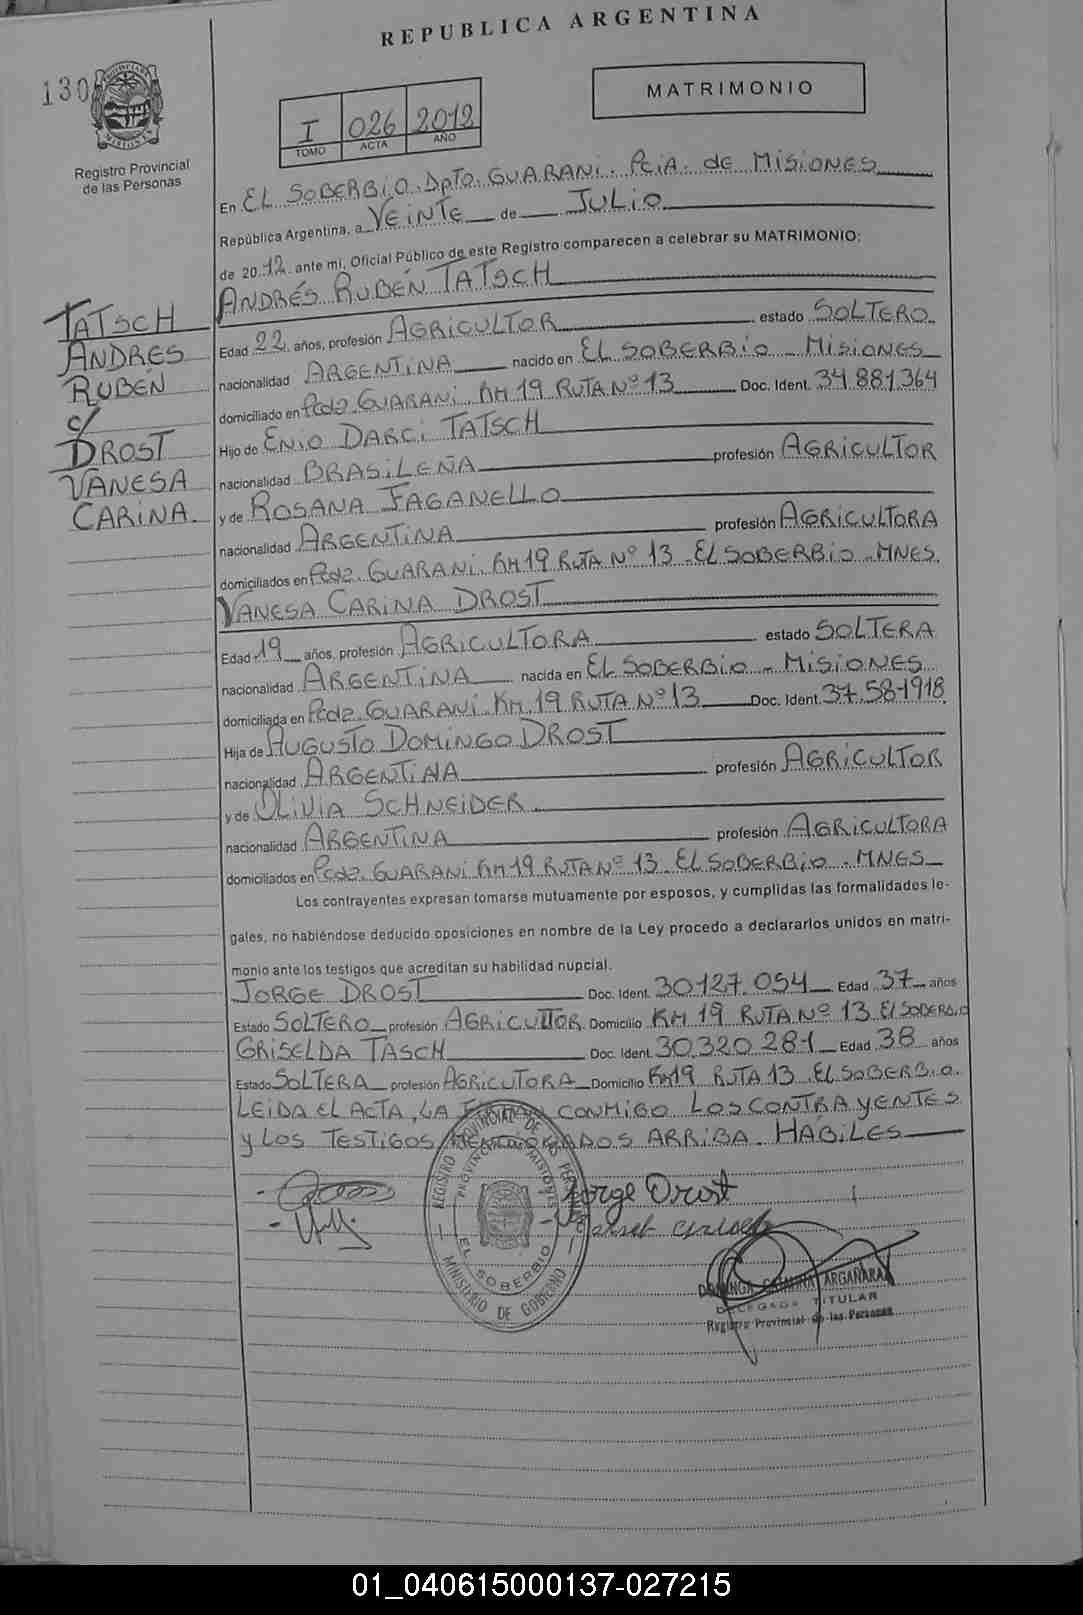 REPUBLICA ARGENTINA
130
PROVINCIA DE MISIONES
Registro Provincial
de las Personas
I 026 2012
TOMO ACTA AÑO
MATRIMONIO
En EL SOBERBIO. DpTO. GUARANI. PciA. de MISIONES
República Argentina, a VEINTE de JULIO
de 2012 ante mi, Oficial Público de este Registro comparecen a celebrar su MATRIMONIO:
ANDRÉS RUBÉN TATSCH
TATSCH
ANDRES
RUBÉN
c/
DROST
VANESA
CARINA
Edad 22 años, profesión AGRICULTOR estado SOLTERO
nacionalidad ARGENTINA nacido en EL SOBERBIO - MISIONES
domiciliado en Pcdo. GUARANI. KM 19 RUTA Nº 13 Doc. Ident. 34.881.364
Hijo de ENIO DARCI TATSCH
nacionalidad BRASILEÑA profesión AGRICULTOR
y de ROSANA FAGANELLO
nacionalidad ARGENTINA profesión AGRICULTORA
domiciliados en Pcdo. GUARANI. KM 19 RUTA Nº 13. EL SOBERBIO - MNES.
VANESA CARINA DROST
Edad 19 años, profesión AGRICULTORA estado SOLTERA
nacionalidad ARGENTINA nacida en EL SOBERBIO - MISIONES
domiciliada en Pcdo. GUARANI. KM. 19 RUTA Nº 13 Doc. Ident. 37.581918
Hija de AUGUSTO DOMINGO DROST
nacionalidad ARGENTINA profesión AGRICULTOR
y de OLIVIA SCHNEIDER
nacionalidad ARGENTINA profesión AGRICULTORA
domiciliados en Pcdo. GUARANI KM 19 RUTA Nº 13. EL SOBERBIO - MNES
Los contrayentes expresan tomarse mutuamente por esposos, y cumplidas las formalidades le-
gales, no habiéndose deducido oposiciones en nombre de la Ley procedo a declararlos unidos en matri-
monio ante los testigos que acreditan su habilidad nupcial.
JORGE DROST Doc. Ident. 30.127.054 Edad 37 años
Estado SOLTERO profesión AGRICULTOR Domicilio KM 19 RUTA Nº 13 El SOBERBIO
GRISELDA TASCH Doc. Ident. 30.320.281 Edad 38 años
Estado SOLTERA profesión AGRICUTORA Domicilio KM19 RUTA 13. EL SOBERBIO.
LEIDA EL ACTA, LA CONMIGO LOS CONTRAYENTES
y LOS TESTIGOS MENCIONADOS ARRIBA. HÁBILES
Jorge Drost
REGISTRO PROVINCIAL DE LAS PERSONAS
PROVINCIA DE MISIONES
EL SOBERBIO
MINISTERIO DE GOBIERNO
CATALINA ARGAÑARAZ
DELEGADA TITULAR
Registro Provincial de las Personas
01_040615000137-027215